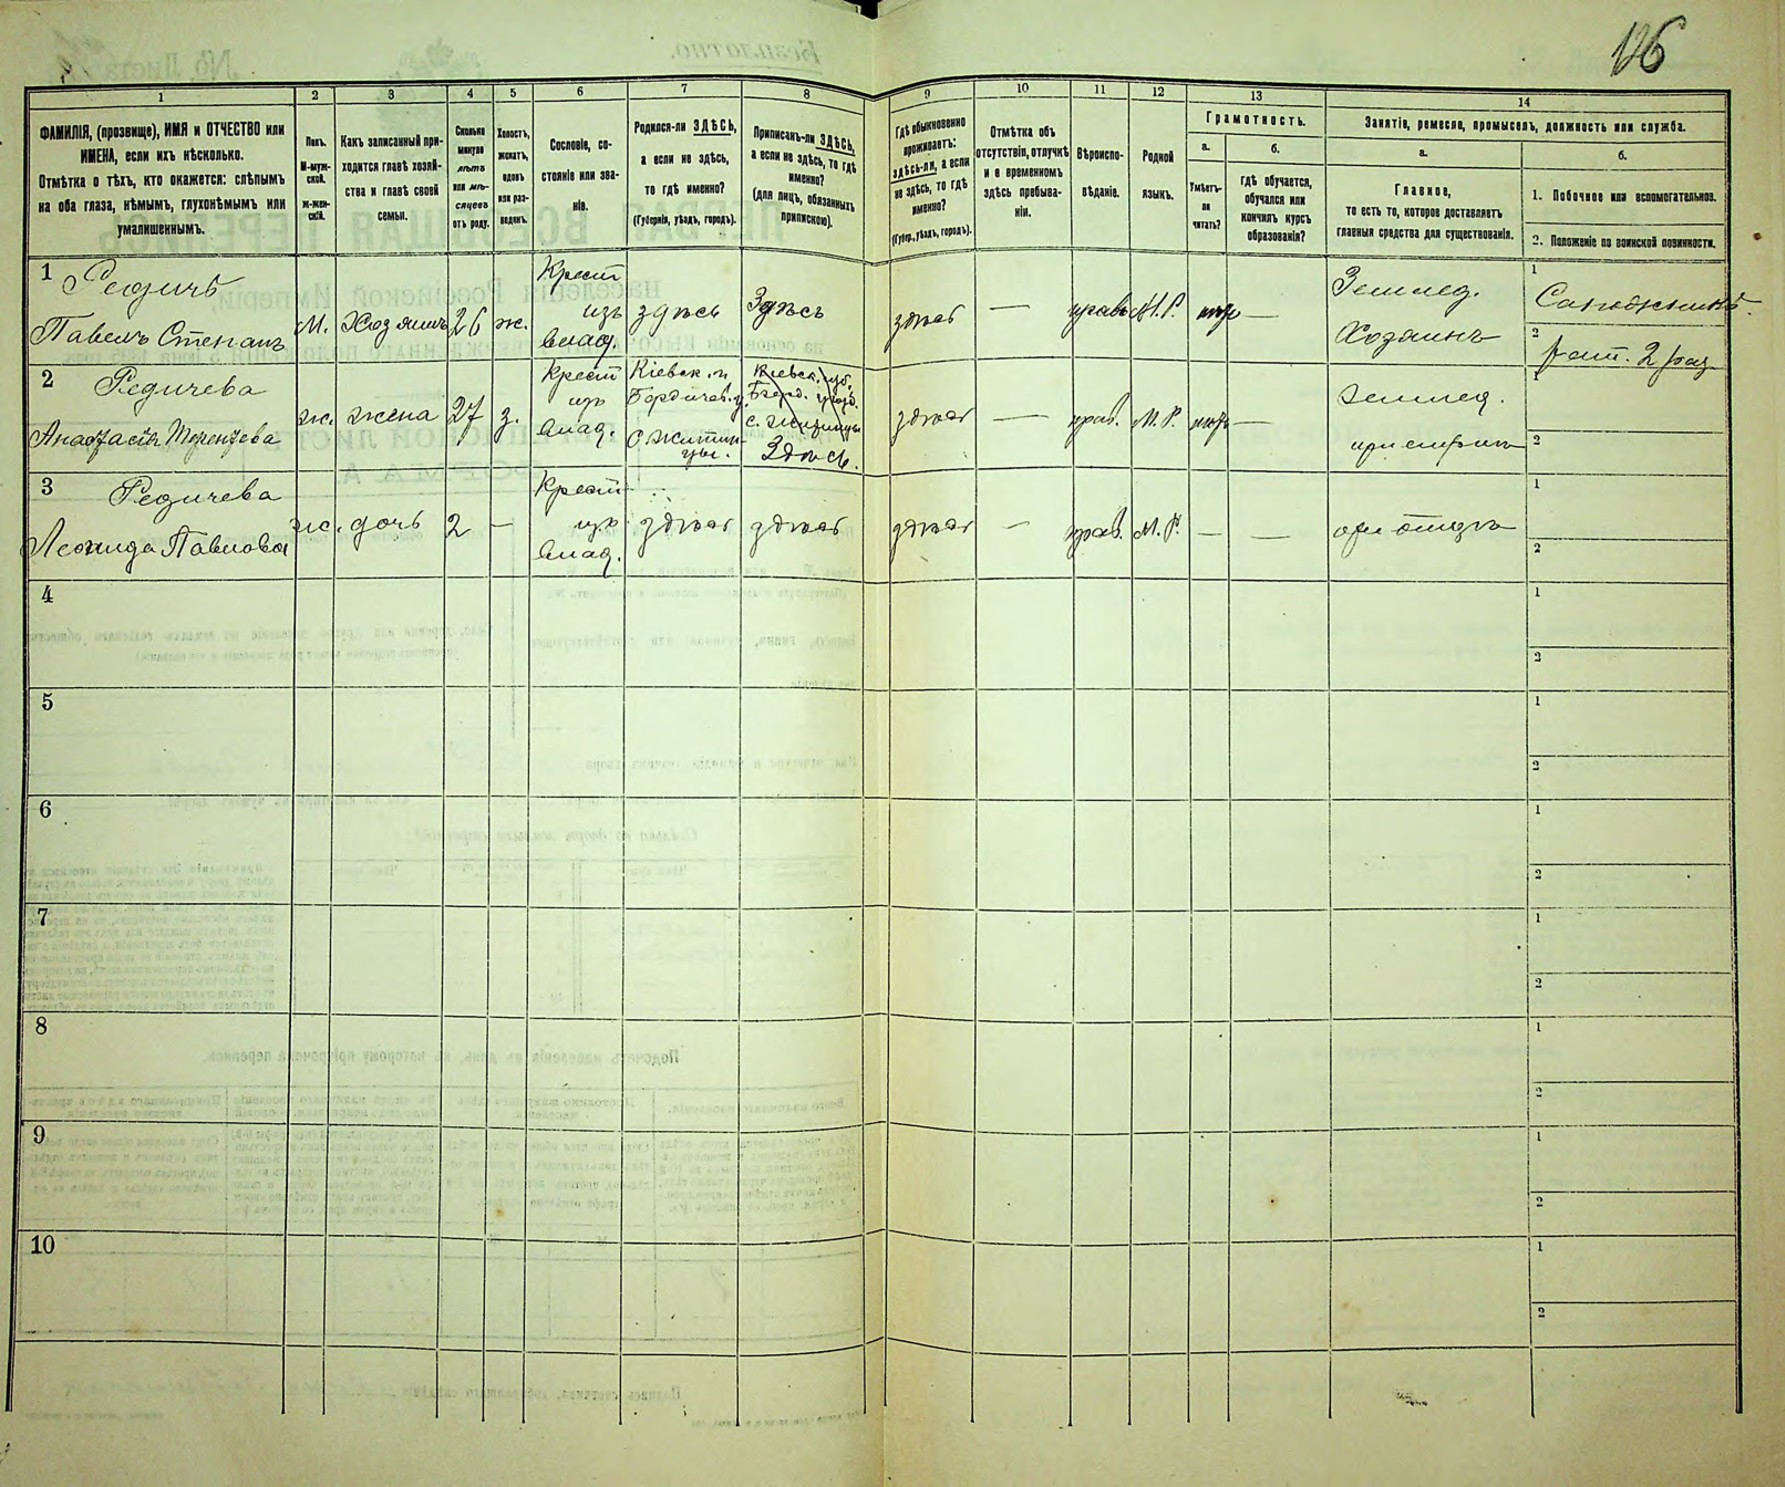 126
1
2
3
4
5
6
7
8
9
10
11
12
13
14
ФАМИЛІЯ, (прозвище), ИМЯ и ОТЧЕСТВО или
ИМЕНА, если ихъ нѣсколько.
Отмѣтка о тѣхъ, кто окажется: слѣпымъ
на оба глаза, нѣмымъ, глухонѣмымъ или
умалишеннымъ.
Полъ.
М-муж-
ской.
ж-жен-
скій.
Какъ записанный при-
ходится главѣ хозяй-
ства и главѣ своей
семьи.
Сколько
минуло
лѣтъ
или мѣ-
сяцевъ
отъ роду.
Холостъ,
женатъ,
вдовъ
или раз-
веденъ.
Сословіе, со-
стояніе или зва-
ніе.
Родился-ли ЗДѢСЬ,
а если не здѣсь,
то гдѣ именно?
(Губернія, уѣздъ, городъ).
Приписанъ-ли ЗДѢСЬ,
а если не здѣсь, то гдѣ
именно?
(для лицъ, обязанныхъ
припискою).
Гдѣ обыкновенно
проживаетъ:
здѣсь-ли, а если
не здѣсь, то гдѣ
именно?
(Губер., уѣздъ, городъ).
Отмѣтка объ
отсутствіи, отлучкѣ
и о временномъ
здѣсь пребыва-
ніи.
Вѣроиспо-
вѣданіе.
Родной
языкъ.
Грамотность.
а.
Умѣетъ-
ли
читать?
б.
гдѣ обучается,
обучался или
кончилъ курсъ
образованія?
Занятіе, ремесло, промыселъ, должность или служба.
а.
Главное,
то есть то, которое доставляетъ
главныя средства для существованія.
б.
1. Побочное или вспомогательное.
2. Положеніе по воинской повинности.
1
Павелъ Степанъ
М.
Хозяинъ
26
ж.
Крест
изъ
влад.
здѣсь
Здѣсь
здѣсь
—
прав
М. Р.
—
Землед.
Хозяинъ
1
Сапожникъ.
2
рат. 2 раз
2
Редичева
Анастасія Терентьева
ж.
жена
27
з.
Крест
изъ
влад.
Кіевск. г.
Бердичев. у.
Кіевск. губ.
Здѣсь.
здѣсь
—
прав.
М. Р.
—
Землед.
1
2
3
Редичева
Леонида Павлова
ж.
дочь
2
—
Крест
изъ
влад.
здѣсь
здѣсь
здѣсь
—
прав.
М. Р.
—
—
при отцѣ
1
2
4
1
2
5
1
2
6
1
2
7
1
2
8
1
2
9
1
2
10
1
2